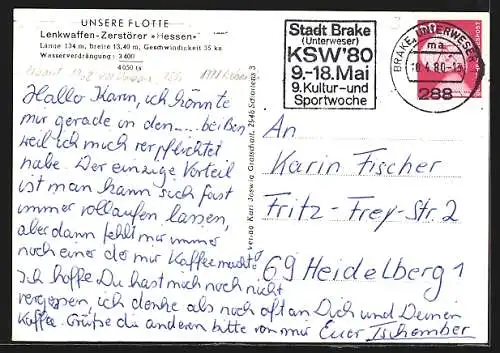 UNSERE FLOTTE
Lenkwaffen-Zerstörer »Hessen«
Länge 134 m, Breite 13,40 m, Geschwindigkeit 35 kn
Wasserverdrängung: 3 400
4050 ts
Stadt Brake
(Unterweser)
KSW'80
9.-18. Mai
9. Kultur-und
Sportwoche
BRAKE, UNTERWESER 1
ma
10.4.80-13
288
Hallo Karin, ich könnte
mir gerade in den ..... beißen
weil ich mich verpflichtet
habe. Der einzige Vorteil
ist man kann sich fast
immer vollaufen lassen,
aber dann fehlt mir immer
noch einer der mir Kaffee macht.
Ich hoffe Du hast mich noch nicht
vergessen, ich denke als noch oft an Dich und Deinen
Kaffee. Grüße die anderen bitte von mir Euer Tschamber
An
Karin Fischer
Fritz-Frey-Str. 2
69 Heidelberg 1
Verlag Karl Joswig Gratschaft, 2948 Schortens 3